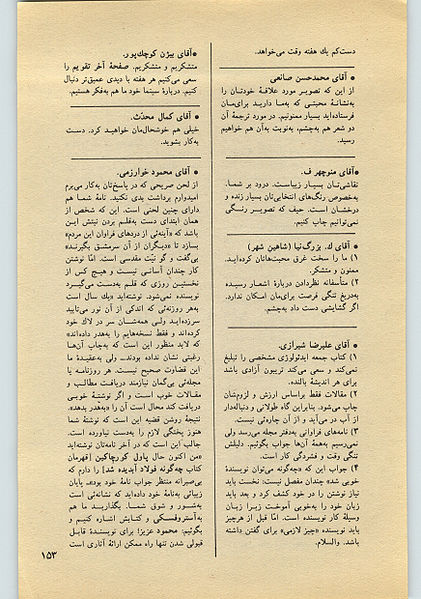 دست‌کم یك هفته وقت می‌خواهد.
● آقای محمدحسن صانعی
از این که تصویر مورد علاقهٔ خودتان را
به‌نشانهٔ محبتی که به‌ما دارید برای‌مان
فرستاده‌اید بسیار ممنونیم. در مورد ترجمهٔ آن
دو شعر هم به‌چشم، به‌نوبت به‌آن هم خواهیم
رسید.
●آقای منوچهر ف.
نقاشی‌تان بسیار زیباست. درود بر شما.
به‌خصوص رنگ‌های انتخابی‌تان بسیار زنده و
درخشان است. حیف که تصویر رنگی
نمی‌توانیم چاپ کنیم.
● آقای ك. بزرگ‌نیا (شاهین شهر)
۱) ما را سخت غرق محبت‌هاتان کرده‌اید.
ممنون و متشکر.
۲) متأسفانه نظردادن دربارهٔ اشعار رسیده
به‌دریغ تنگی فرصت برای‌مان امکان ندارد.
اگر گشایشی دست داد به‌چشم.
● آقای علیرضا شیرازی.
۱) کتاب جمعه ایدئولوژی مشخصی را تبلیغ
نمی‌کند و سعی می‌کند تریبون آزادی باشد
برای هر اندیشهٔ بالنده.
۲) مقالات فقط براساس ارزش و لزوم‌شان
چاپ می‌شود. بنابراین گاه طولانی و دنباله‌دار
از آب در می‌آید و از آن چاره‌ئی نیست.
۳) نامه‌های فراوانی به‌دفتر مجله می‌رسد ولی
نمی‌رسیم به‌همهٔ آن‌ها جواب بگوئیم. دلیلش
تنگی وقت و فشردگی کار است.
۴) جواب این که «چه‌گونه می‌توان نویسندهٔ
خوبی شد» چندان مفصل نیست: نخست باید
نیاز نوشتن را در خود کشف کرد و بعد باید
زبان خود را به‌خوبی آموخت زیرا زبان
وسیلهٔ کار نویسنده است. امّا قبل از هرچیز
باید نویسنده «چیز لازمی» برای گفتن داشته
باشد. والسلام.
●آقای بیژن کوچك‌پور.
متشکریم و متشکریم. صفحهٔ آخر تقویم را
سعی می‌کنیم هر هفته با دیدی عمیق‌تر دنبال
کنیم. دربارهٔ سینما خود ما هم به‌فکر هستیم.
● آقای کمال محدّث.
خیلی هم خوشحال‌مان خواهید کرد. دست
به‌کار بشوید.
● آقای محمود خوارزمی.
از لحن صریحی که در پاسخ‌تان به‌کار می‌برم
امیدوارم برداشت بدی نکنید. نامهٔ شما هم
دارای چنین لحنی است. این که شخص از
ابتدای عمر دست به‌قلم بردن نیتش این
باشد که «آینه‌ئی از دردهای فراوان این مردم»
بسازد تا «دیگران از آن سرمشق بگیرند»
بی‌گفت و گو نیّت مقدسی است. امّا نوشتن
کار چندان آسانی نیست و هیچ کس از
نخستین روزی که قلم به‌دست می‌گیرد
نویسنده نمی‌شود. نوشته‌اید «یك سال است
به‌هر روزنه‌ئی که اندکی از آن نور می‌تابید
سرزده‌اید ولی همه‌شان سر در لاك خود
کرده‌اند و فقط نسخه‌هایم را به‌هدر داده‌اند»
که لابد منظور این است که به‌چاپ آن‌ها
رغبتی نشان نداده بودند... ولی به‌عقیدهٔ ما
این قضاوت صحیح نیست. هر روزنامه یا
مجله‌ئی بی‌گمان نیازمند دریافت مطالب و
مقالات خوب است و اگر نوشتهٔ خوبی
دریافت کند محال است آن را «به‌هدر بدهد».
نتیجهٔ روشن قضیه این است که نوشتهٔ شما
هنوز پختگی لازم را به‌دست نیاورده است.
جالب این است که در آخر نامه‌تان نوشته‌اید
«من اکنون حال پاول کورچاگین [قهرمان
کتاب چه‌گونه فولاد آبدیده شد] را دارم که
بی‌صبرانه منتظر جواب نامهٔ خود بود». پایان
زیبائی به‌نامهٔ خود داده‌اید که نشانه‌ئی است
به‌شور و شوق شما. بگذارید ما هم
به‌آستروفسکی و کتابش اشاره کنیم و
بگوئیم: محمود عزیز! برای نویسندهٔ قابل
قبولی شدن تنها راه ممکن ارائهٔ آثاری است
۱۵۳